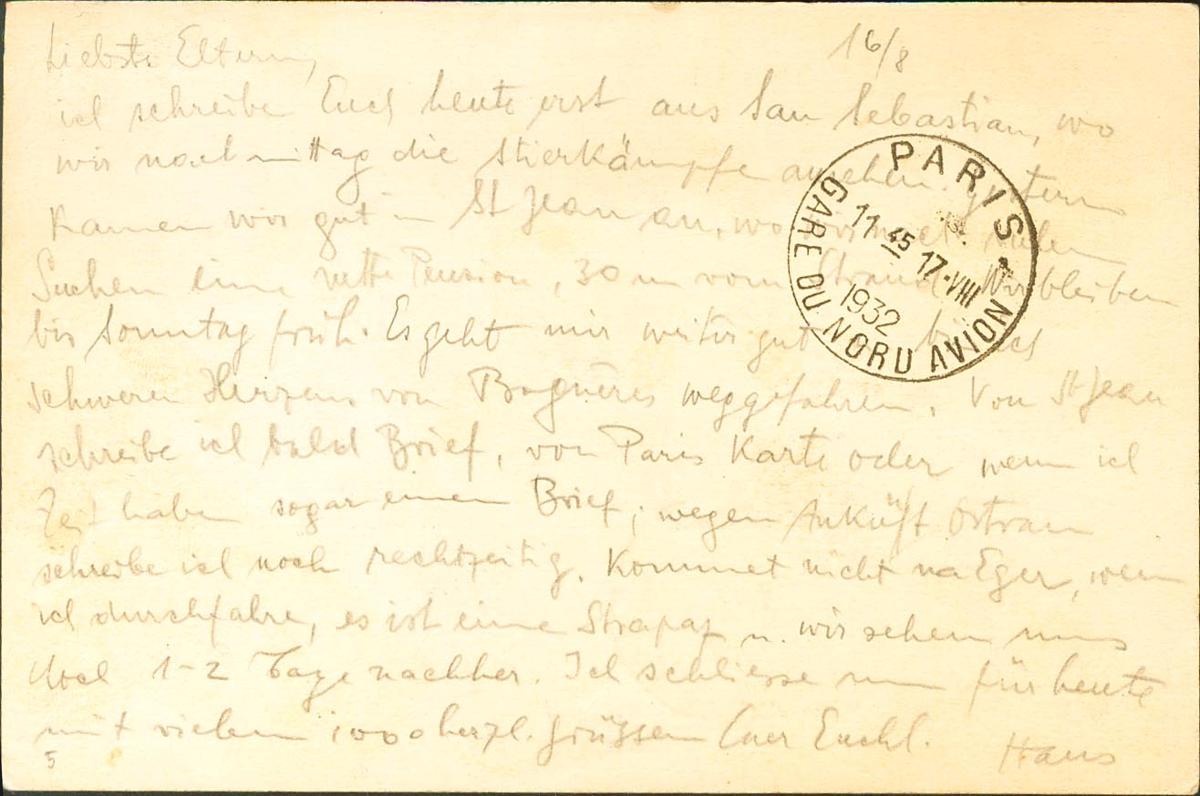 16/8
Liebste Eltern,
ich schreibe Euch heute erst aus San Sebastian, wo
wir nachmittag die Stierkämpfe ansehen. Gestern
kamen wir gut in St Jean an, wo wir nach
Suchen eine nette Pension, 30 m vom Strand. Wir bleiben
bis Sonntag früh. Es geht mir weiter gut
schweren Herzens von Bagnères weggefahren. Von St Jean
schreibe ich bald Brief, von Paris Karte oder wenn ich
Zeit haben sogar einen Brief; wegen Ankunft Ostrau
schreibe ich noch rechtzeitig. Kommet nicht na Eger, wenn
ich durchfahre, es ist eine Strapaz u. wir sehen uns
doch 1-2 Tage nachher. Ich schliesse nun für heute
mit vielen 1000 herzl. Grüssen
Hans
5
PARIS
GARE DU NORD AVION
11 45
17·VIII
1932